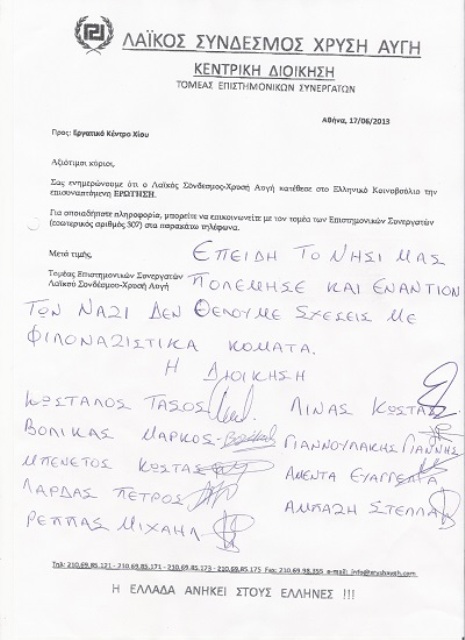 ΛΑΪΚΟΣ ΣΥΝΔΕΣΜΟΣ ΧΡΥΣΗ ΑΥΓΗ
ΚΕΝΤΡΙΚΗ ΔΙΟΙΚΗΣΗ
ΤΟΜΕΑΣ ΕΠΙΣΤΗΜΟΝΙΚΩΝ ΣΥΝΕΡΓΑΤΩΝ
Αθήνα, 17/06/2013
Προς: Εργατικό Κέντρο Χίου
Αξιότιμοι κύριοι,
Σας ενημερώνουμε ότι ο Λαϊκός Σύνδεσμος-Χρυσή Αυγή κατέθεσε στο Ελληνικό Κοινοβούλιο την
επισυναπτόμενη ΕΡΩΤΗΣΗ.
Για οποιαδήποτε πληροφορία, μπορείτε να επικοινωνείτε με τον τομέα των Επιστημονικών Συνεργατών
(εσωτερικός αριθμός 307) στα παρακάτω τηλέφωνα.
Μετά τιμής,
Τομέας Επιστημονικών Συνεργατών
Λαϊκού Σύνδεσμου-Χρυσή Αυγή
ΕΠΕΙΔΗ ΤΟ ΝΗΣΙ ΜΑΣ
ΠΟΛΕΜΗΣΕ ΚΑΙ ΕΝΑΝΤΙΟΝ
ΤΩΝ ΝΑΖΙ ΔΕΝ ΘΕΛΟΥΜΕ ΣΧΕΣΕΙΣ ΜΕ
ΦΙΛΟΝΑΖΙΣΤΙΚΑ ΚΟΜΑΤΑ.
Η ΔΙΟΙΚΗΣΗ
ΚΩΣΤΑΛΟΣ ΤΑΣΟΣ ΛΙΝΑΣ ΚΩΣΤΑΣ
ΒΟΛΙΚΑΣ ΜΑΡΚΟΣ ΓΙΑΝΝΟΥΛΑΚΗΣ ΓΙΑΝΝΗΣ
ΜΠΕΝΕΤΟΣ ΚΩΣΤΑΣ ΑΜΕΝΤΑ ΕΥΑΓΓΕΛΙΑ
ΛΑΡΔΑΣ ΠΕΤΡΟΣ ΑΜΠΑΖΗ ΣΤΕΛΛΑ
ΡΕΠΠΑΣ ΜΙΧΑΗΛ
Τηλ: 210.69.85.121 - 210.69.85.171 - 210.69.85.173 - 210.69.85.175 Fax: e-mail:
Η ΕΛΛΑΔΑ ΑΝΗΚΕΙ ΣΤΟΥΣ ΕΛΛΗΝΕΣ !!!